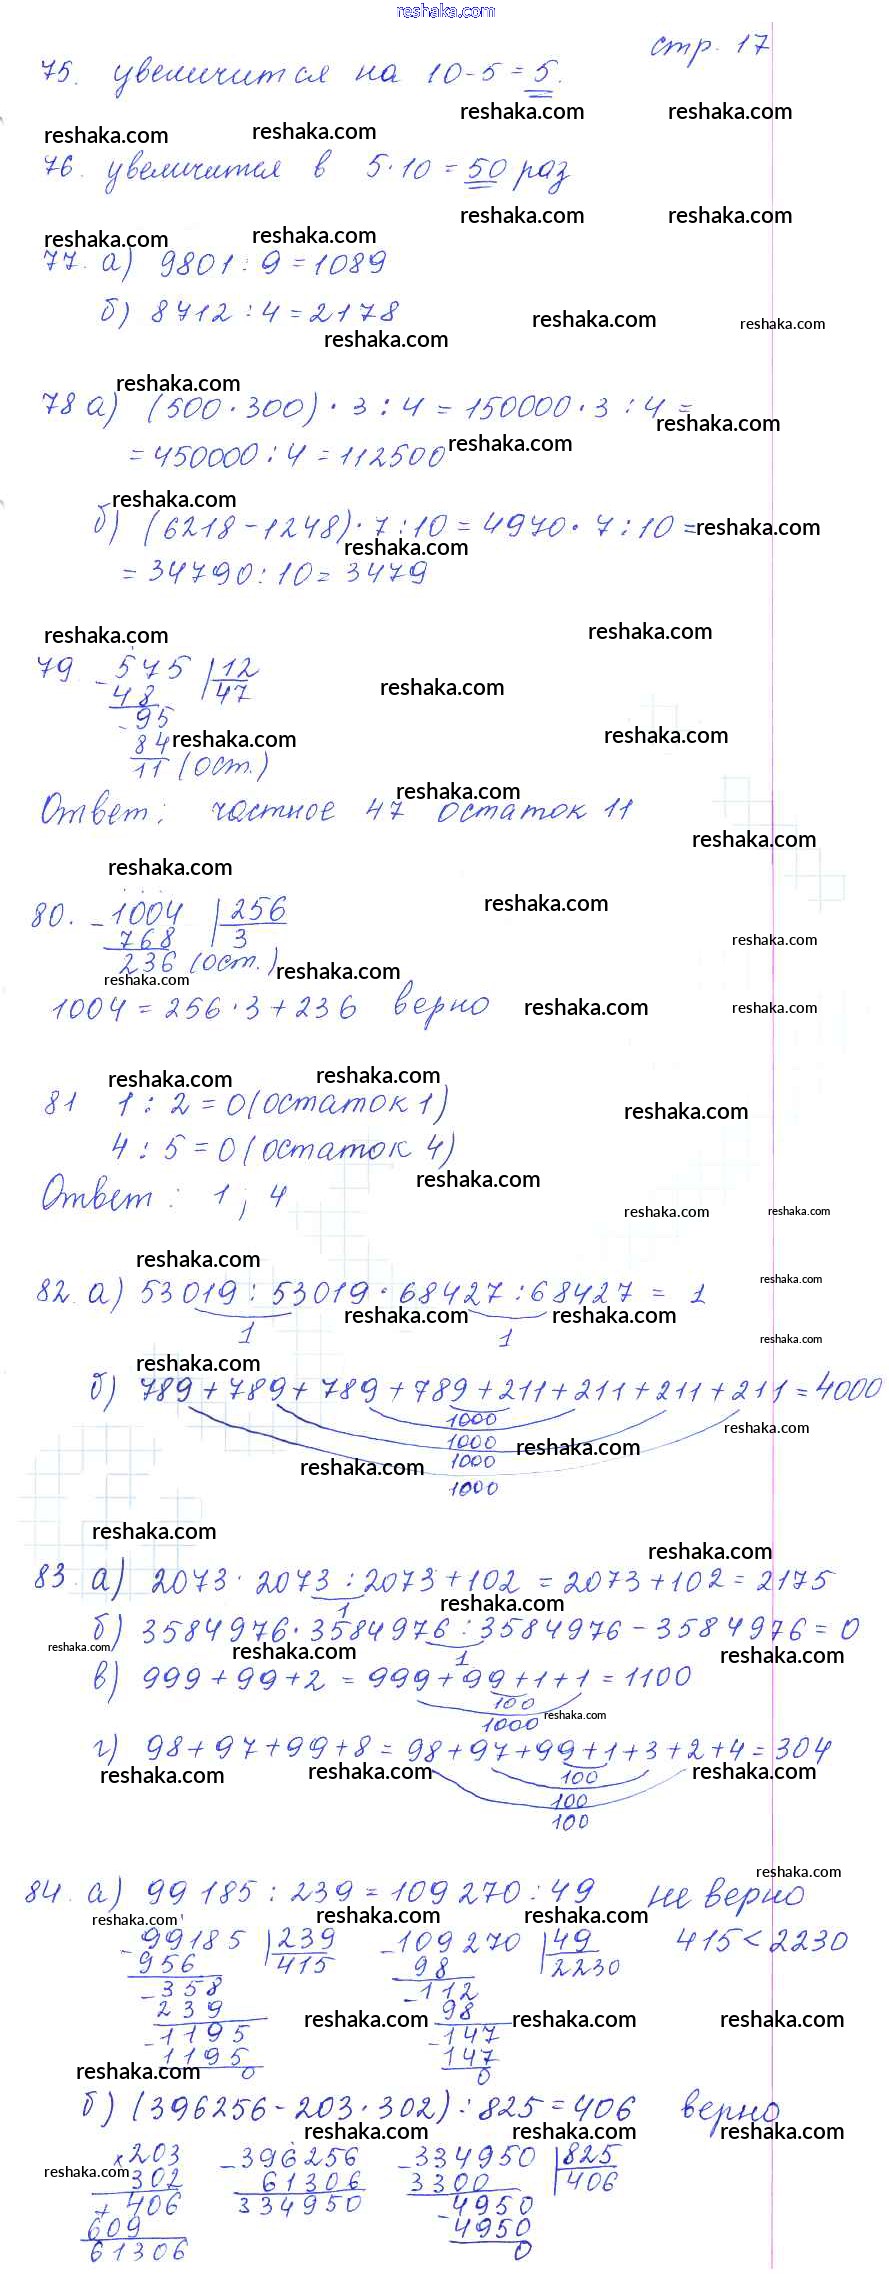 reshaka.com
стр. 17
75. увеличится на 10-5=5.
reshaka.com reshaka.com
reshaka.com reshaka.com
76. увеличится в 5·10=50 раз
reshaka.com reshaka.com
reshaka.com reshaka.com
77. а) 9801:9=1089
б) 8712:4=2178
reshaka.com reshaka.com
reshaka.com
reshaka.com
78 а) (500·300)·3:4=150000·3:4=
reshaka.com
=450000:4=112500
reshaka.com
reshaka.com
б) (6218-1248)·7:10=4970·7:10=
reshaka.com
reshaka.com
=34790:10=3479
reshaka.com reshaka.com
79. -575 |12
48 47
reshaka.com
-95
84
reshaka.com reshaka.com
11 (ост.)
reshaka.com
Ответ: частное 47 остаток 11
reshaka.com
reshaka.com
80. -1004 |256
reshaka.com
768 3
reshaka.com
236 (ост.)
reshaka.com
reshaka.com
1004=256·3+236 верно
reshaka.com reshaka.com
reshaka.com reshaka.com
81 1:2=0(остаток 1)
reshaka.com
4:5=0(остаток 4)
reshaka.com
Ответ: 1; 4
reshaka.com reshaka.com
reshaka.com
reshaka.com
82. а) 53019:53019·68427:68427 = 1
reshaka.com reshaka.com
1 1
reshaka.com
reshaka.com
б) 789+789+789+789+211+211+211+211=4000
1000
reshaka.com
1000
reshaka.com
1000
reshaka.com
1000
reshaka.com
reshaka.com
83. а) 2073·2073:2073+102=2073+102=2175
1
reshaka.com
б) 3584976·3584976:3584976-3584976=0
reshaka.com reshaka.com reshaka.com
1
в) 999+99+2=999+99+1+1=1100
100
reshaka.com
1000
г) 98+97+99+8=98+97+99+1+3+2+4=304
reshaka.com reshaka.com reshaka.com
100
100
100
reshaka.com
84. а) 99185:239=109270:49 не верно
reshaka.com reshaka.com reshaka.com
-99185 |239 -109270 |49 415<2230
956 415 98 2230
-358 -112
239 98
reshaka.com reshaka.com reshaka.com
-1195 -147
1195 147
reshaka.com
0 0
б) (396256-203·302):825=406 верно
reshaka.com reshaka.com reshaka.com
×203 -396256 -334950 |825
reshaka.com
302 61306 3300 406
+406 334950 -4950
609 4950
61306 0